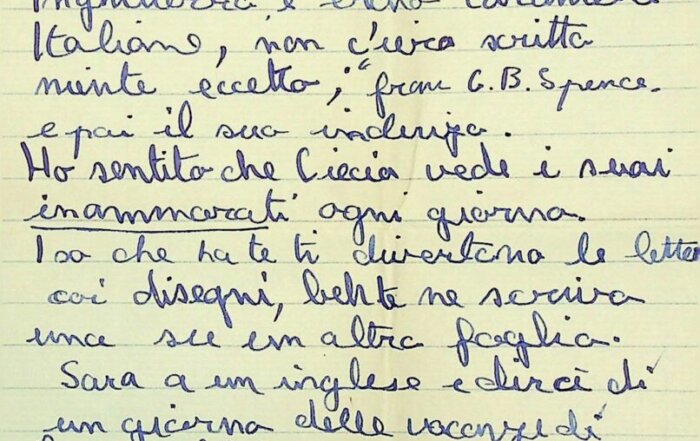 Inghilterra e erano
Italiane, non c'iera scritto
niente eccetto, "from G.B. Spence.
e poi il suo inderizo.
Ho sentito che Ciccia vede i suoi
inammorati ogni giorno.
I so che ha te ti divertono le letter
coi disegni, behte ne scrivo
uno su un altro foglio.
Sara a un inglese e di
un giorno delle vacanze di